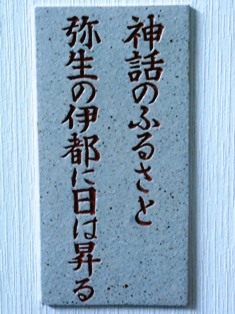 神話のふるさと
弥生の伊都に日は昇る